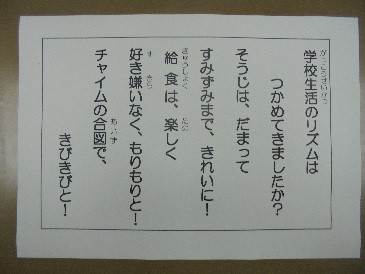 学校生活のリズムは
つかめてきましたか?
そうじは、だまって
すみずみまで、きれいに!
給食は、楽しく
好き嫌いなく、もりもりと!
チャイムの合図で、
きびきびと!